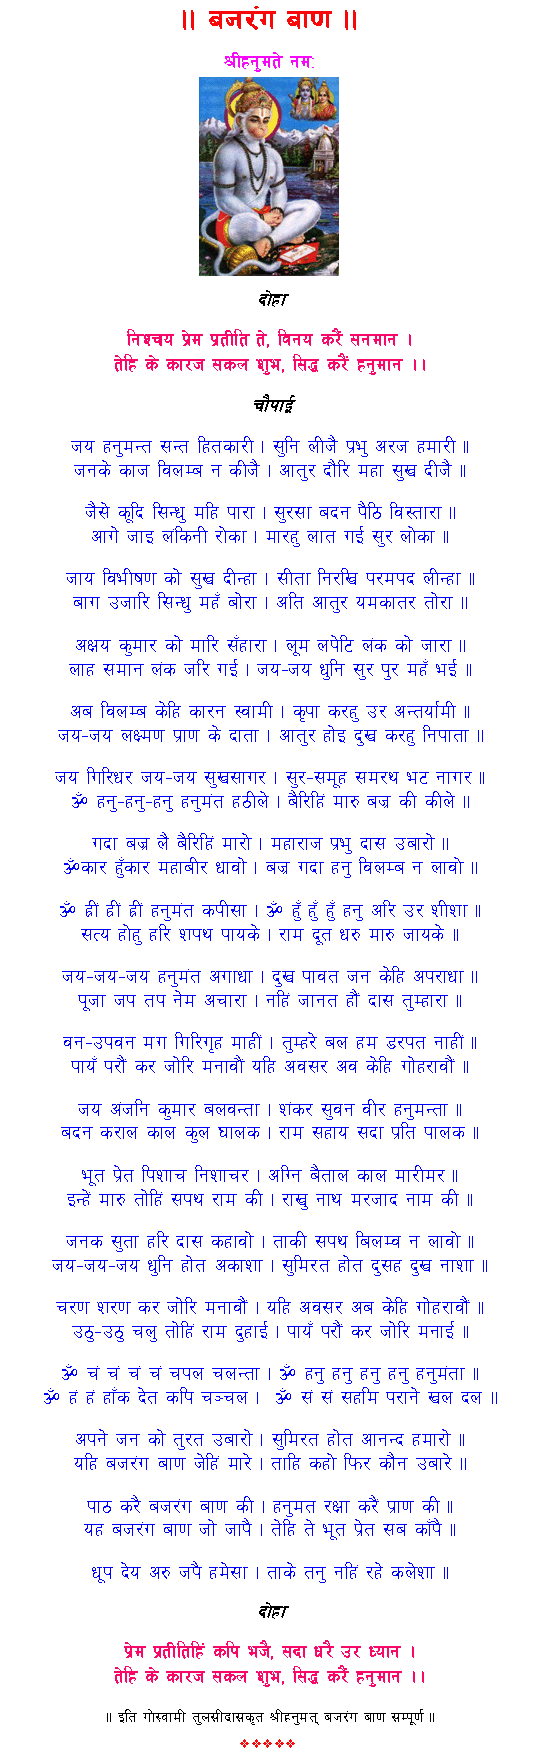 ॥ बजरंग बाण ॥
श्रीहनुमते नम:
दोहा
निश्चय प्रेम प्रतीति ते, विनय करैं सनमान ।
तेहि के कारज सकल शुभ, सिद्ध करैं हनुमान ।।
चौपाई
जय हनुमन्त सन्त हितकारी । सुनि लीजै प्रभु अरज हमारी ॥
जनके काज विलम्ब न कीजै । आतुर दौरि महा सुख दीजै ॥
जैसे कूदि सिन्धु महि पारा । सुरसा बदन पैठि विस्तारा ॥
आगे जाइ लंकिनी रोका । मारहु लात गई सुर लोका ॥
जाय विभीषण को सुख दीन्हा । सीता निरखि परमपद लीन्हा ॥
बाग उजारि सिन्धु महँ बोरा । अति आतुर यमकातर तोरा ॥
अक्षय कुमार को मारि सँहारा । लूम लपेटि लंक को जारा ॥
लाह समान लंक जरि गई । जय-जय धुनि सुर पुर महँ भई ॥
अब विलम्ब केहि कारन स्वामी । कृपा करहु उर अन्तर्यामी ॥
जय-जय लक्ष्मण प्राण के दाता । आतुर होइ दुख करहु निपाता ॥
जय गिरिधर जय-जय सुखसागर । सुर-समूह समरथ भट नागर ॥
ॐ हनु-हनु-हनु हनुमंत हठीले । बैरिहिं मारु बज्र की कीले ॥
गदा बज्र लै बैरिहिं मारो । महाराज प्रभु दास उबारो ॥
ॐकार हुँकार महाबीर धावो । बज्र गदा हनु विलम्ब न लावो ॥
ॐ ह्रीं ह्रीं ह्रीं हनुमंत कपीसा । ॐ हुँ हुँ हुँ हनु अरि उर शीशा ॥
सत्य होहु हरि शपथ पायके । राम दूत धरु मारु जायके ॥
जय-जय-जय हनुमंत अगाधा । दुख पावत जन केहि अपराधा ॥
पूजा जप तप नेम अचारा । नहिं जानत हौं दास तुम्हारा ॥
वन-उपवन मग गिरिगृह माहीं । तुम्हरे बल हम डरपत नाहीं ॥
पायँ परौं कर जोरि मनावौं यहि अवसर अव केहि गोहरावौं ॥
जय अंजनि कुमार बलवन्ता । शंकर सुवन वीर हनुमन्ता ॥
बदन कराल काल कुल घालक । राम सहाय सदा प्रति पालक ॥
भूत प्रेत पिशाच निशाचर । अग्नि बैताल काल मारीमर ॥
इन्हें मारु तोहिं सपथ राम की । राखु नाथ मरजाद नाम की ॥
जनक सुता हरि दास कहावो । ताकी सपथ बिलम्व न लावो ॥
जय-जय-जय धुनि होत अकाशा । सुमिरत होत दुसह दुख नाशा ॥
चरण शरण कर जोरि मनावौं । यहि अवसर अब केहि गोहरावौं ॥
उठु-उठु चलु तोहिं राम दुहाई । पायँ परौं कर जोरि मनाई ॥
ॐ चं चं चं चं चपल चलन्ता । ॐ हनु हनु हनु हनु हनुमंता ॥
ॐ हं हं हाँक देत कपि चञ्चल । ॐ सं सं सहमि पराने खल दल ॥
अपने जन को तुरत उबारो । सुमिरत होत आनन्द हमारो ॥
यहि बजरंग बाण जेहिं मारे । ताहि कहो फिर कौन उबारे ॥
पाठ करै बजरंग बाण की । हनुमत रक्षा करैं प्राण की ॥
यह बजरंग बाण जो जापै । तेहि ते भूत प्रेत सब काँपै ॥
धूप देय अरु जपै हमेसा । ताके तनु नहिं रहे कलेशा ॥
दोहा
प्रेम प्रतीतिहिं कपि भजै, सदा धरै उर ध्यान ।
तेहि के कारज सकल शुभ, सिद्ध करैं हनुमान ।।
॥ इति गोस्वामी तुलसीदासकृत श्रीहनुमत् बजरंग बाण सम्पूर्ण ॥